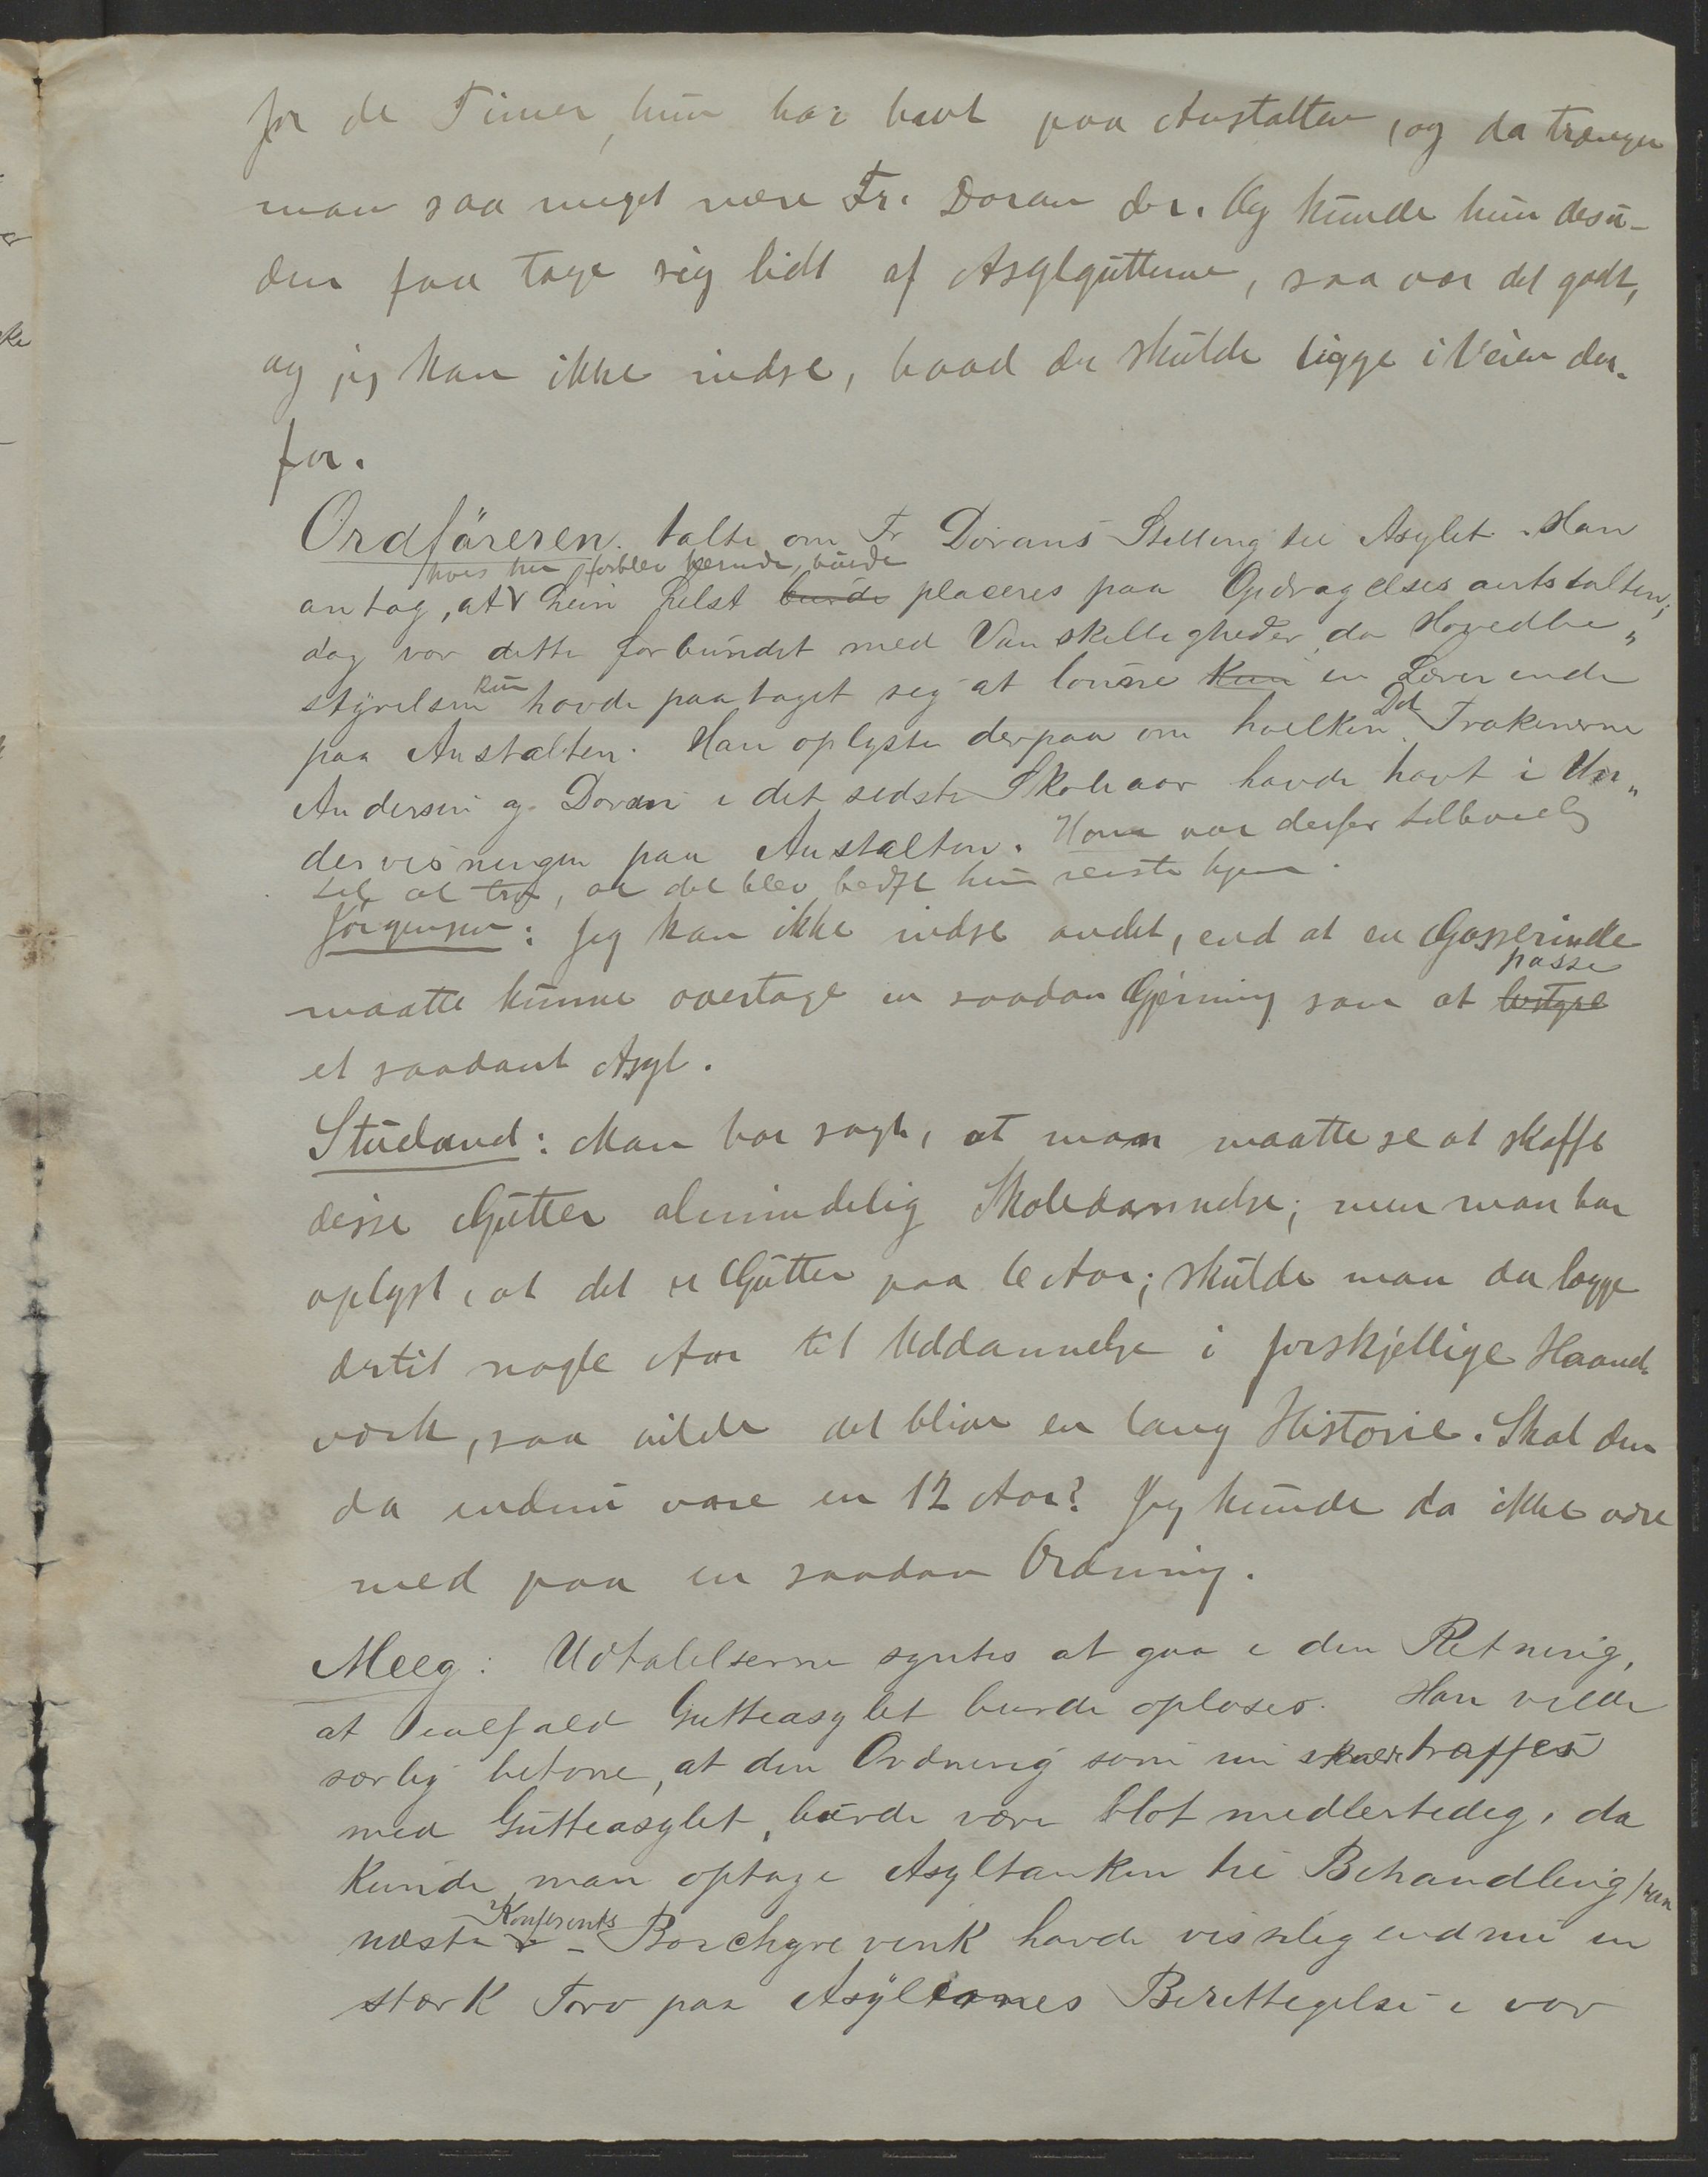 for de Timer, hun har havt paa Anstalten, og da trænger
man saa meget mere Fr. Doran der. Og kunde hun desu-
den faa tage sig lidt af Asylgutterne, saa var det godt,
og jeg kan ikke indse, hvad der skulde ligge i Veien der-
for.
Ordföreren talte om Fr Dorans Stilling til Asylet. Han
hvis hun forblev herude, burde
antog, at hun helst burde placeres paa Opdragelsesanstalten;
dog var dette forbundet med Vanskeligheder, da Hovedbe„
styrelsen kun havde paataget seg at lönne kun en Lærerinde
paa Anstalten. Han oplyste derpaa om hvilken Del Frøknerne
Andersen og Doran i det sidste Skoleaar havde havt i Un„
dervisningen paa Anstalten. Han var derfor tilböielig
til at tro, at det blev bedst hun reiste hjem.
Jörgensen: Jeg kan ikke indse andet, end at en Gasserinde
passe
maatte kunne overtage en saadan Gjerning som at bestyre
et saadant Asyl.
Studland: Man har sagt, at man maatte se at skaffe
disse Gutter almindelig Skoledannelse; men man har
oplyst, at det er Gutter paa 6 Aar; skulde man da lægge
dertil nogle Aar til Uddannelse i forskjellige Haand-
værk, saa vilde det blive en lang Historie. Skal den
da endnu vare en 12 Aar? Jeg kunde da ikke være
med paa en saadan Ordning.
Meeg: Udtalelserne syntes at gaa i den Retning,
at ialfald Gutteasylet burde oplöses. Han vilde
særlig betone, at den Ordning som nu træffes
med Gutteasylet, burde være blot midlertidig, da
kunde man optage Asyltanken til Behandling paa
næste Konferents - Borchgrevink havde visselig endnu en
stærk Tro paa Asylernes Berettigelse i vor